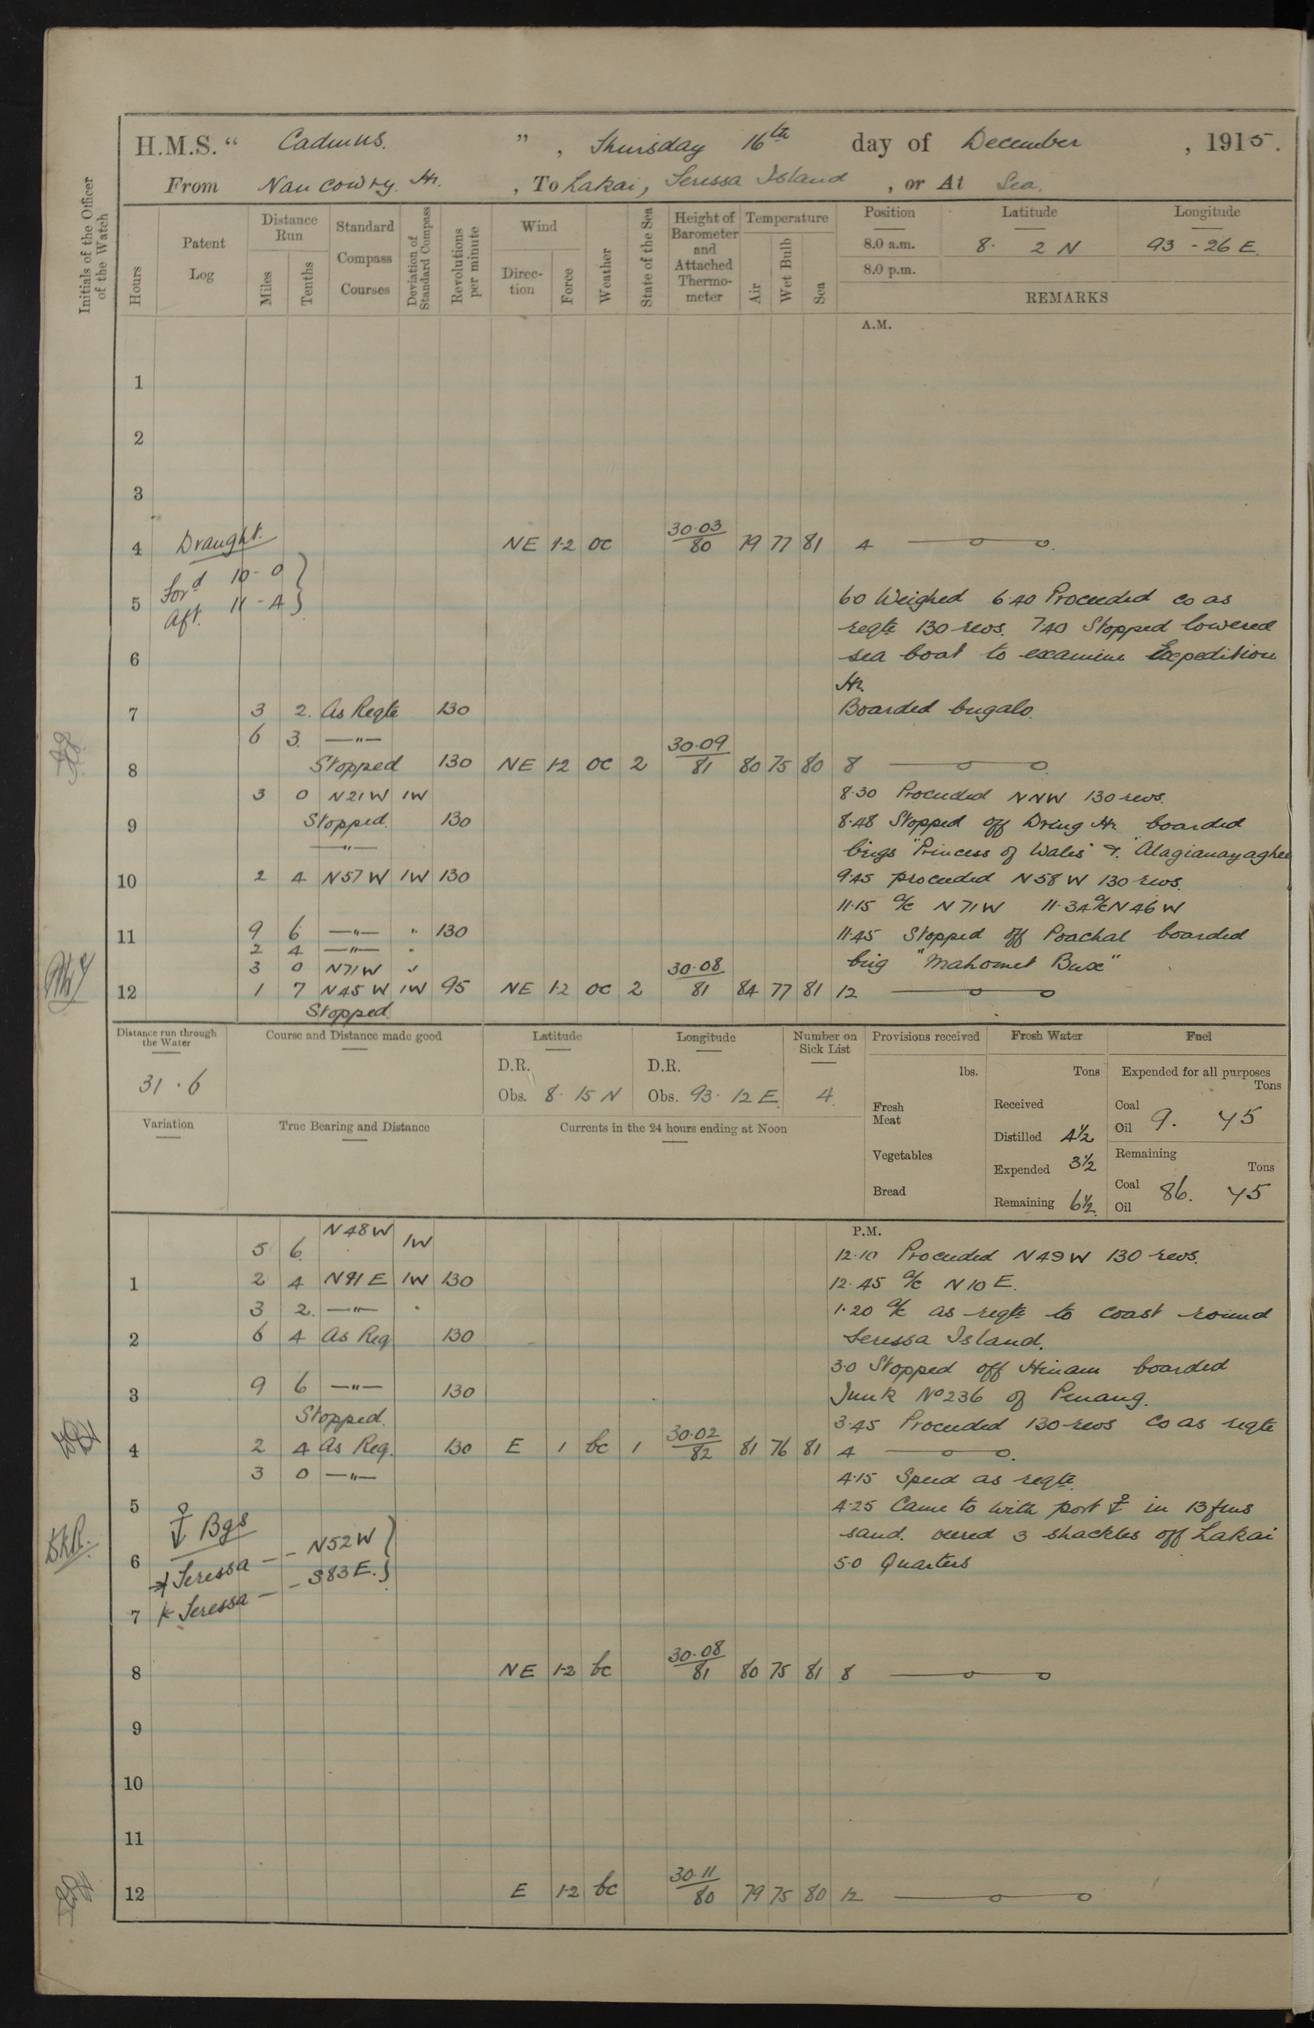 H.M.S. “ Cadmus. ” , Thursday 16th day of December , 1915.
From Nancowry. Hr. , To Lakai, Teressa Island , or At Sea.
Initials of the Officer of the Watch
Hours
Patent Log
Distance Run
Miles
Tenths
Standard Compass Courses
Deviation of Standard Compass
Revolutions per minute
Wind
Direction
Force
Weather
State of the Sea
Height of Barometer and Attached Thermometer
Temperature
Air
Wet Bulb
Sea
Position Latitude Longitude
8.0 a.m. 8. 2 N 93 - 26 E.
8.0 p.m.
REMARKS
A.M.
1
2
3
Draught.
4 NE 1·2 oc 30·03/80 79 77 81 4
Ford 10 - 0
5 Aft. 11 - 4 6·0 Weighed 6·40 Proceeded co as
reqte 130 revs. 7·40 Stopped lowered
6 sea boat to examine Expedition
Hr.
7 3 2. As Reqte 130 Boarded bugalo.
6 3. —"—
8 Stopped 130 NE 1·2 oc 2 30·09/81 80 75 80 8
3 0 N21W 1W 8·30 Proceeded NNW 130 revs.
9 Stopped. 130 8·48 Stopped off Dring Hr. boarded
—"— brigs "Princess of Wales" &
10 2 4 N57W 1W 130 9·45 proceeded N58W 130 revs.
11·15 a/c N71W 11·34 a/c N46W
11 9 6 —"— " 130 11·45 Stopped off Poachal boarded
2 4 —"— " brig "Mahomet Bux"
3 0 N71W "
12 1 7 N45W 1W 95 NE 1·2 oc 2 30·08/81 84 77 81 12
Stopped
Distance run through the Water
31 . 6
Course and Distance made good
Latitude
D.R.
Obs. 8. 15 N
Longitude
D.R.
Obs. 93. 12 E.
Number on Sick List
4.
Provisions received
lbs.
Fresh Meat
Vegetables
Bread
Fresh Water
Tons
Received
Distilled 4½
Expended 3½
Remaining 6½
Fuel
Expended for all purposes
Tons
Coal
Oil 9. 45
Remaining
Tons
Coal
Oil 86. 45
Variation
True Bearing and Distance
Currents in the 24 hours ending at Noon
P.M.
5 6. N48W 1W 12·10 Proceeded N49W 130 revs.
1 2 4 N91E 1W 130 12·45 a/c N10E.
3 2. —"— " 1·20 a/c as reqte to coast round
2 6 4 As Req 130 Teressa Island.
3·0 Stopped off Hinam boarded
3 9 6 —"— 130 Junk No 236 of Penang.
Stopped. 3·45 Proceeded 130 revs Co as reqte
4 2 4 As Req. 130 E 1 bc 1 30·02/82 81 76 81 4
3 0 —"— 4·15 Speed as reqte.
5 4·25 Came to with port ⚓ in 13 fms
⚓ Bgs sand. veered 3 shackles off Lakai
6 Teressa — - N52W 5·0 Quarters
7 Teressa — - S83E.
8 NE 1·2 bc 30·08/81 80 75 81 8
9
10
11
12 E 1·2 bc 30·11/80 79 75 80 12